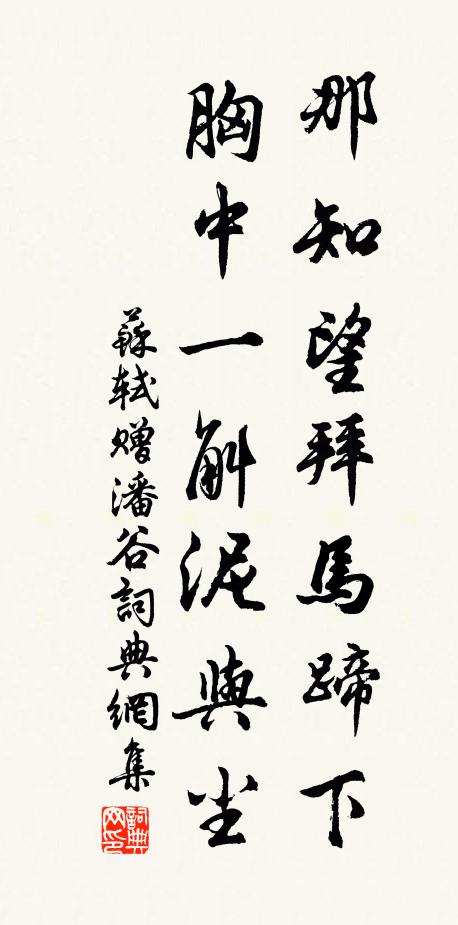 那知望拜馬蹄下
胸中一斛泥與尘
蘇軾赠潘谷詞典網集
詞典网印